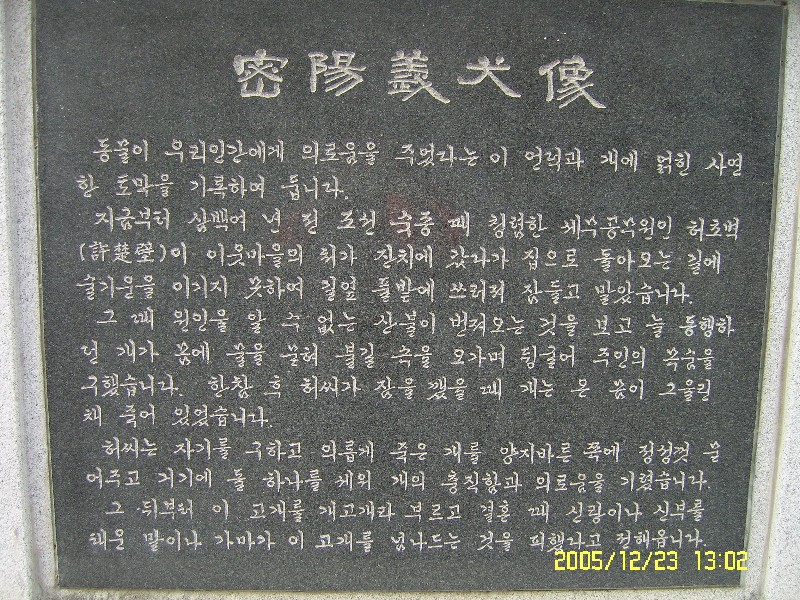 密陽義犬像
동물이 우리인간에게 의로움을 주었다라는 이 언덕과 개에 얽힌 사연
한 토막을 기록하여 둡니다.
지금부터 삼백여 년 전 조선 숙종 때 청렴한 세무공무원인 허초벽
(許楚壁)이 이웃마을의 회가 잔치에 갔다가 집으로 돌아오는 길에
술기운을 이기지 못하여 길옆 풀밭에 쓰러져 잠들고 말았습니다.
그 때 원인을 알 수 없는 산불이 번져오는 것을 보고 늘 동행하
던 개가 몸에 물을 묻혀 불길 속을 오가며 뒹굴어 주인의 목숨을
구했습니다. 한참 후 허씨가 잠을 깼을 때 개는 온 몸이 그을린
채 죽어 있었습니다.
허씨는 자기를 구하고 의롭게 죽은 개를 양지바른 쪽에 정성껏 묻
어주고 거기에 돌 하나를 세워 개의 충직함과 의로움을 기렸습니다.
그 뒤부터 이 고개를 개고개라 부르고 결혼 때 신랑이나 신부를
태운 말이나 가마가 이 고개를 넘나드는 것을 피했다고 전해옵니다.
2005/12/23 13:02